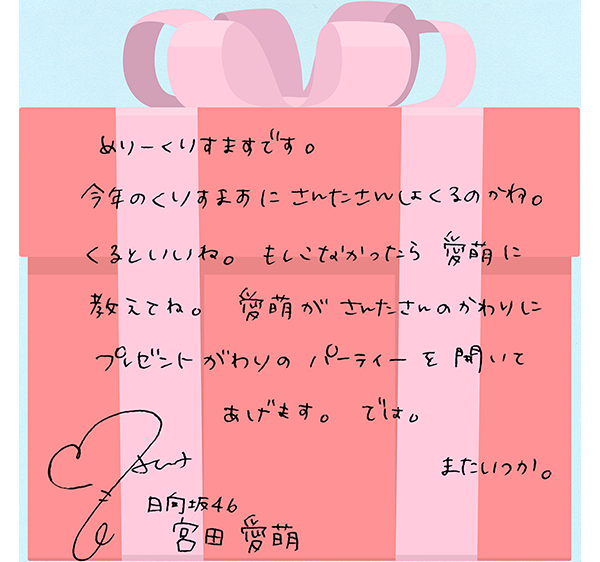 めりーくりすますです。
今年のくりすますに さんたさんはくるのかね。
くるといいね。 もしこなかったら 愛萌に
教えてね。 愛萌が さんたさんのかわりに
プレゼントがわりの パーティーを 開いて
あげます。 では。
またいつか。
日向坂46
宮田 愛萌